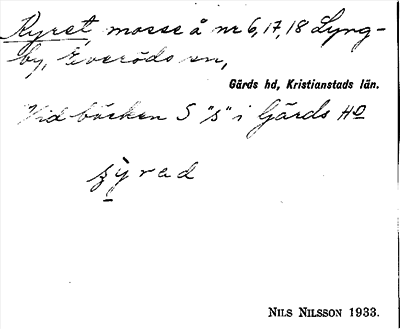 Ryret, mosse å nr 6, 17, 18 Lyng-
by, Everöds sn,
Gärds hd, Kristianstads län.
Vid bäcken S "s" i Gärds HD
ryred
NILS NILSSON 1933.